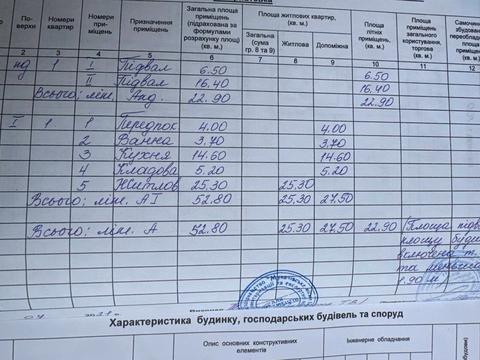 По-
верхи
Номери
квартир
Номери
при-
міщень
Призначення
приміщень
Загальна площа
приміщень
(підрахована за
формулами
розрахунку площ)
(кв. м.)
Площа житлових квартир,
(кв. м.)
Загальна
(сума
гр. 8 та 9)
Житлова
Допоміжна
Площа
літніх
приміщень,
(кв. м.)
Площа
приміщень
загального
користування,
торгова
(кв. м.)
2 3 4 5 6 7 8 9 10 11 12
пд 1 І Підвал 6.50 6.50
ІІ Підвал 16.40 16.40
Всього; літ. 22.90 22.90
І 1 1 4.00 4.00
2 Ванна 3.70 3.70
3 Кухня 14.60 14.60
4 Кладова 5.20 5.20
5 Житлов 25.30 25.30
Всього; літ. АІ 52.80 25.30 27.50
Всього; літ. А 52.80 25.30 27.50 22.90 (Площа підв
площу буди
включена т.
та
1.90 м.)
Характеристика будинку, господарських будівель та споруд
Опис основних конструктивних
елементів
Інженерне обладнання